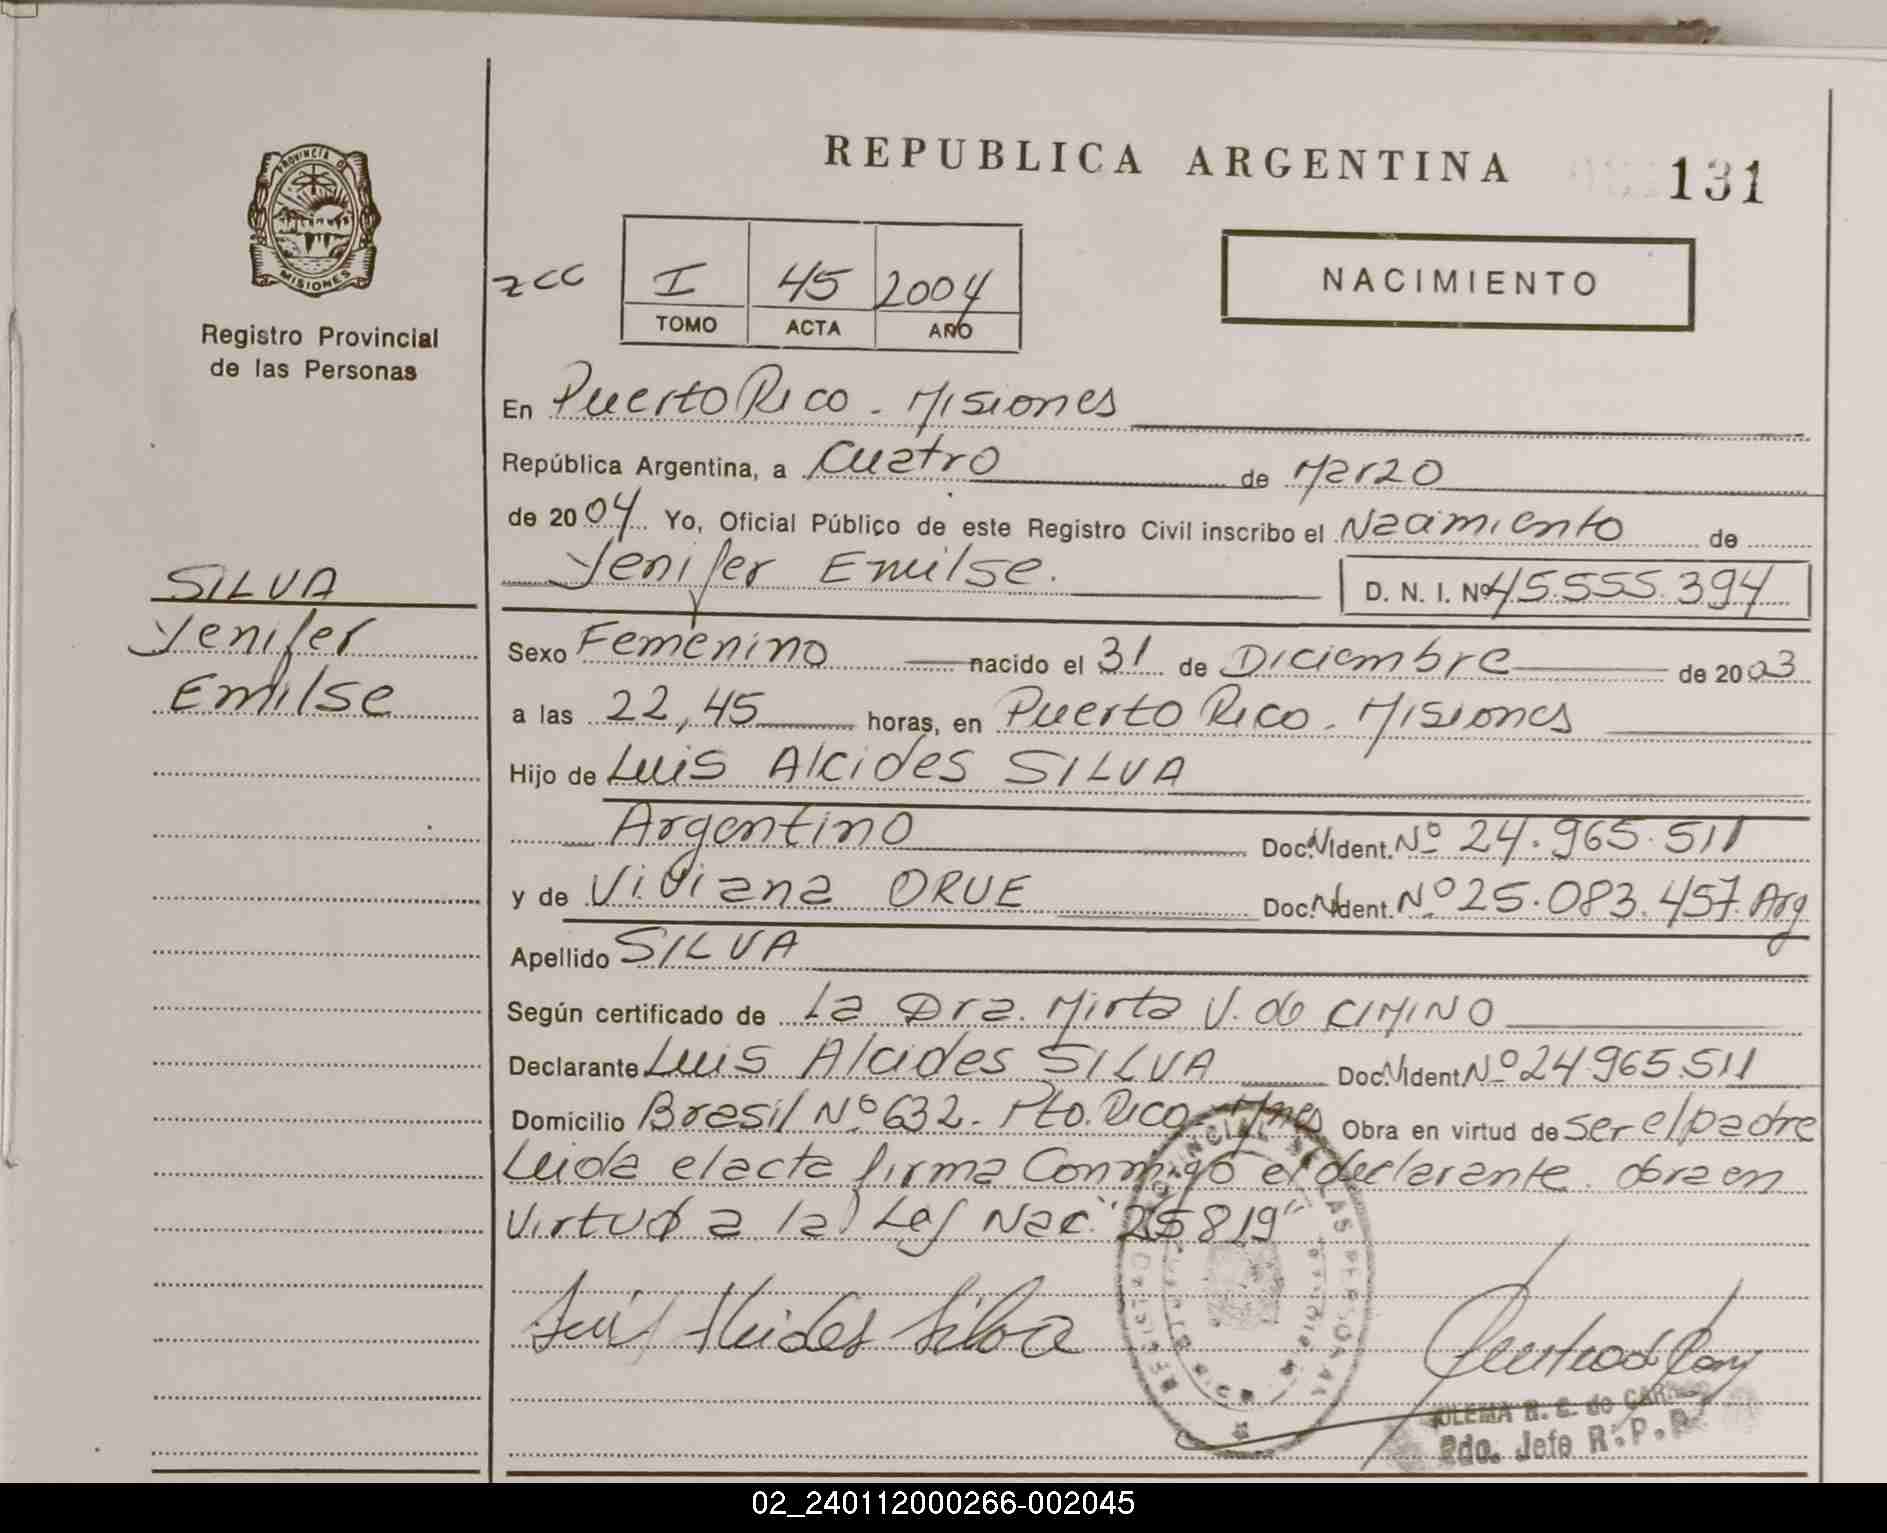 REPUBLICA ARGENTINA
131
PROVINCIA DE
MISIONES
Registro Provincial
de las Personas
zcc
I 45 2004
TOMO ACTA AÑO
NACIMIENTO
En Puerto Rico - Misiones
República Argentina, a Cuatro de Marzo
de 2004 Yo, Oficial Público de este Registro Civil inscribo el Nacimiento de
Yenifer Emilse.
D. N. I. Nº 45.555.394
SILVA
Yenifer
Emilse
Sexo Femenino nacido el 31 de Diciembre de 2003
a las 22,45 horas, en Puerto Rico - Misiones
Hijo de Luis Alcides SILVA
Argentino Doc. N Ident. Nº 24.965.511
y de Viviana ORUE Doc. N Ident. Nº 25.083.457. Arg
Apellido SILVA
Según certificado de La Dra. Mirta V. de CIMINO
Declarante Luis Alcides SILVA Doc. N Ident. Nº 24.965.511
Domicilio Brasil Nº 632 - Pto. Rico - Mnes Obra en virtud de ser el padre
Leida el acta firma Conmigo el declarante. obra en
virtud a la Ley Nac. "25819"
Luis Alcides Silva
R. G. de
Pdo. Jefe R.P.P.
02_240112000266-002045